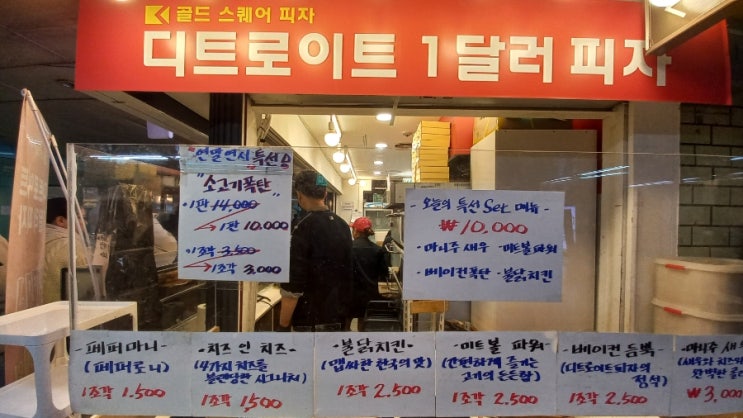 골드 스퀘어 피자
디트로이트 1달러 피자
연말연시 특선용
"소고기폭탄"
·1판 14,000
1판 10.000
·1조각 3.500
1조각 3,000
·오늘의 특선 Set 메뉴·
₩10,000
·마니주 새우 ·미트볼파워
·베이컨폭탄 ·불닭치킨
·페퍼마니·
(페퍼로니)
1조각 1.500
·치즈 인 치즈·
(4가지 치즈를
블렌딩한 시그니처)
1조각 1,500
·불닭치킨·
(맵싸한 한국의 맛)
1조각 2.500
·미트볼 파워·
(간편하게 즐기는
고기의 든든함)
1조각 2.500
·베이컨 듬뿍·
(디트로이트피자의
정석)
1조각 2.500
·마니주 새우
(새우와 치즈의
완벽한
₩3,000